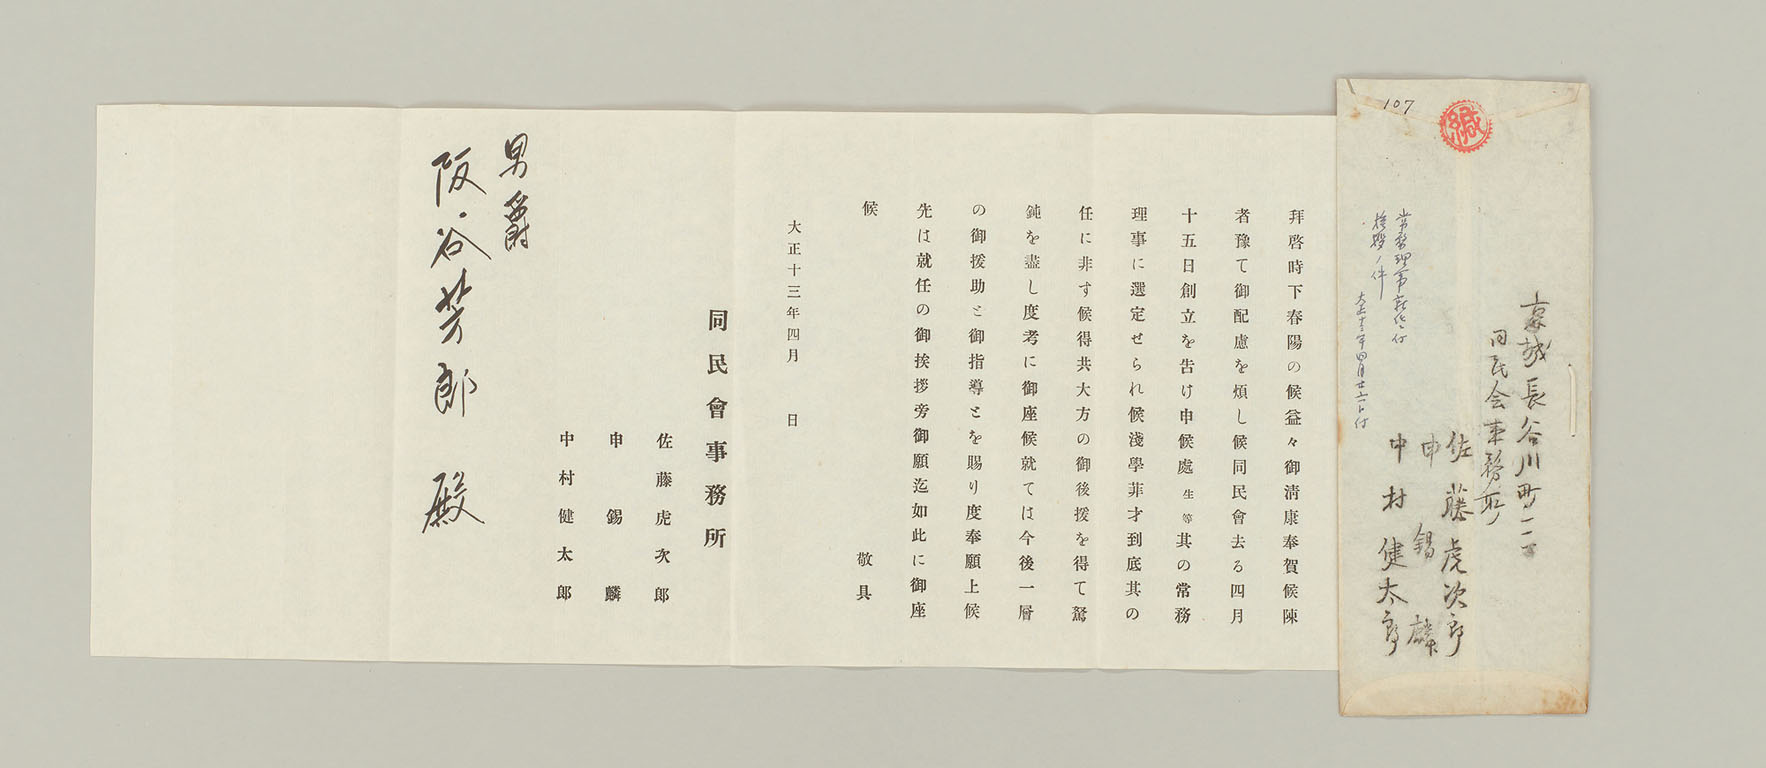 107
緘
京城長谷川町一一二
同民会事務所
佐藤虎次郎
申錫麟
中村健太郎
常務理事就任ニ付
挨拶ノ件
拝啓時下春陽の候益々御淸康奉賀候陳
者豫て御配慮を煩し候同民會去る四月
十五日創立を告け申候處生等其の常務
理事に選定せられ候淺學菲才到底其の
任に非す候得共大方の御後援を得て駑
鈍を盡し度考に御座候就ては今後一層
の御援助と御指導とを賜り度奉願上候
先は就任の御挨拶旁御願迄如此に御座
候　敬具
大正十三年四月　日
同民會事務所
佐藤虎次郎
申錫麟
中村健太郎
男爵
阪谷芳郎殿